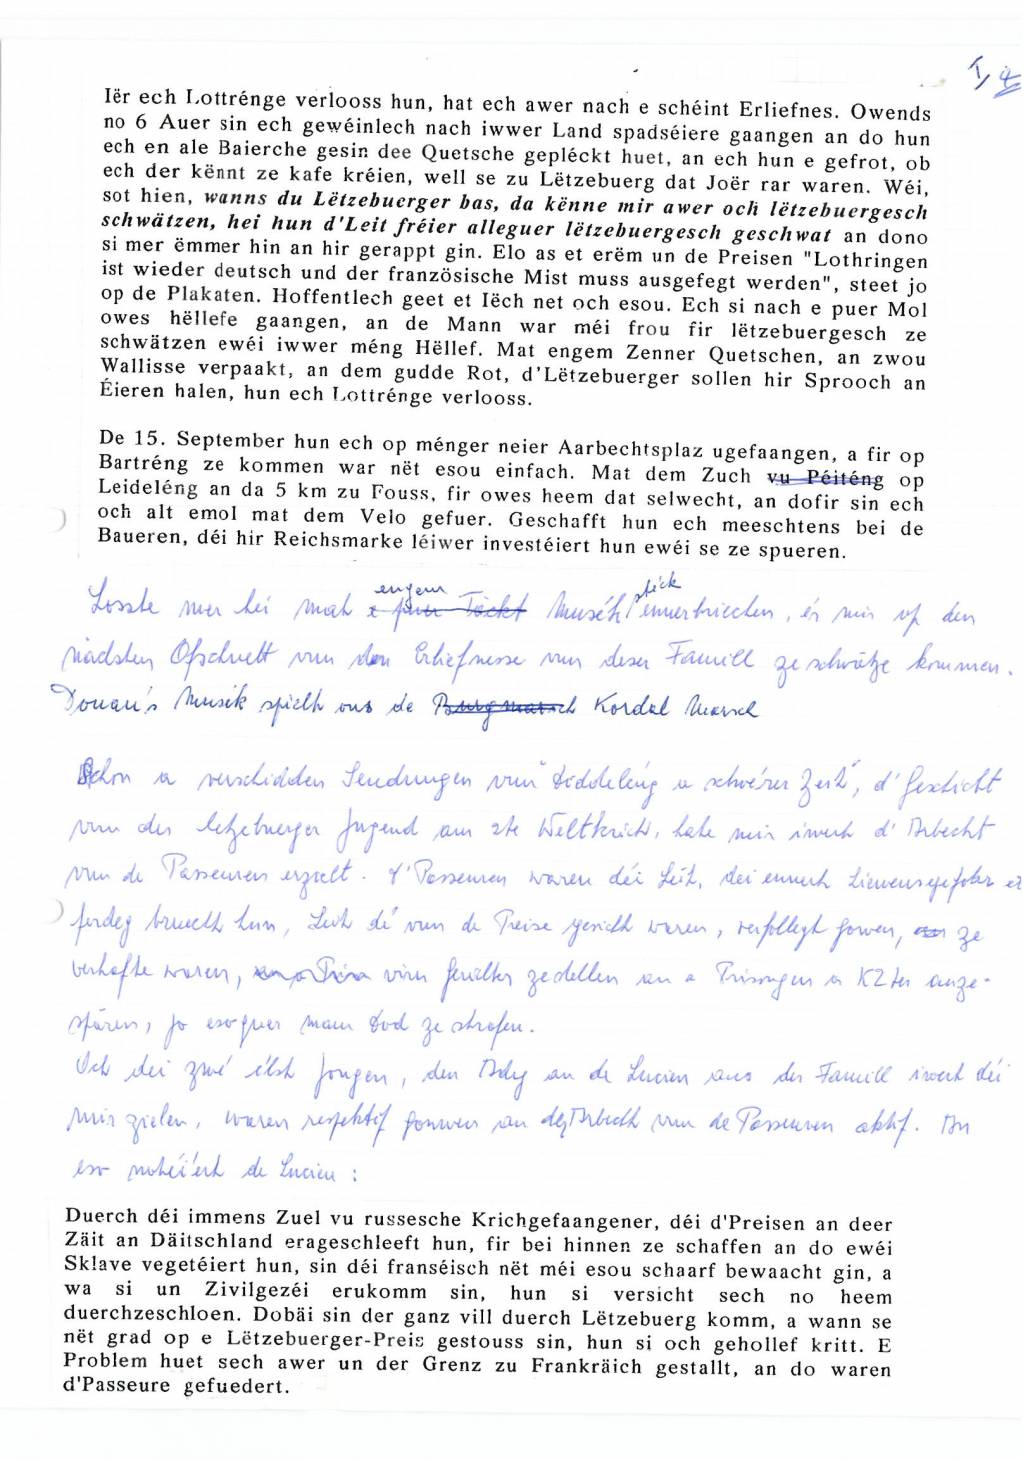 I, 4
Iër ech Lottrénge verlooss hun, hat ech awer nach e schéint Erliefnes. Owends
no 6 Auer sin ech gewéinlech nach iwwer Land spadséiere gaangen an do hun
ech en ale Baierche gesin dee Quetsche gepléckt huet, an ech hun e gefrot, ob
ech der kënnt ze kafe kréien, well se zu Lëtzebuerg dat Joër rar waren. Wéi,
sot hien, wanns du Lëtzebuerger bas, da kënne mir awer och lëtzebuergesch
schwätzen, hei hun d'Leit fréier alleguer lëtzebuergesch geschwat an dono
si mer ëmmer hin an hir gerappt gin. Elo as et erëm un de Preisen "Lothringen
ist wieder deutsch und der französische Mist muss ausgefegt werden", steet jo
op de Plakaten. Hoffentlech geet et Iëch net och esou. Ech si nach e puer Mol
owes hëllefe gaangen, an de Mann war méi frou fir lëtzebuergesch ze
schwätzen ewéi iwwer méng Hëllef. Mat engem Zenner Quetschen, an zwou
Wallisse verpaakt, an dem gudde Rot, d'Lëtzebuerger sollen hir Sprooch an
Éieren halen, hun ech Lottrénge verlooss.
De 15. September hun ech op ménger neier Aarbechtsplaz ugefaangen, a fir op
Bartréng ze kommen war nët esou einfach. Mat dem Zuch vu Péiténg op
Leideléng an da 5 km zu Fouss, fir owes heem dat selwecht, an dofir sin ech
och alt emol mat dem Velo gefuer. Geschafft hun ech meeschtens bei de
Baueren, déi hir Reichsmarke léiwer investéiert hun ewéi se ze spueren.
engem stéck
Losste mer hei mat e puer Täckt Musék ënnerbriechen, ér mir op den
nächsten Ofschnett vun den Erliefnesse vun deser Famill ze schwätze kommen.
Douan's Musék spielt ons de Burgmarsch Kordal Marsch
Schon a verschidden Sendungen vun "Diddeléng a schwérer Zeit", d'Geschicht
vun der letzebuerger Jugend am 2te Weltkrich, hate mir iwert d'Arbecht
vun de Passeuren erzielt. d'Passeuren waren déi Leit, déi ennert Liewensgefohr
ferdeg bruecht hun, Leit dé vun de Preise gesicht waren, verfollegt gowen, ze
verhafte waren, virun Geriichter zestellen an a Prisongen a KZter anze-
spären, jo esoguer mam Dod ze strofen.
Och déi zwé élst Jongen, den Ady an de Lucien aus der Famill iwert déi
mir zielen, waren respektif gouwen an der Arbecht vun de Passeuren aktif. An
eso notéiert de Lucien:
Duerch déi immens Zuel vu russesche Krichgefaangener, déi d'Preisen an deer
Zäit an Däitschland erageschleeft hun, fir bei hinnen ze schaffen an do ewéi
Sklave vegetéiert hun, sin déi franséisch nët méi esou schaarf bewaacht gin, a
wa si un Zivilgezéi erukomm sin, hun si versicht sech no heem
duerchzeschloen. Dobäi sin der ganz vill duerch Lëtzebuerg komm, a wann se
nët grad op e Lëtzebuerger-Preis gestouss sin, hun si och gehollef kritt. E
Problem huet sech awer un der Grenz zu Frankräich gestallt, an do waren
d'Passeure gefuedert.